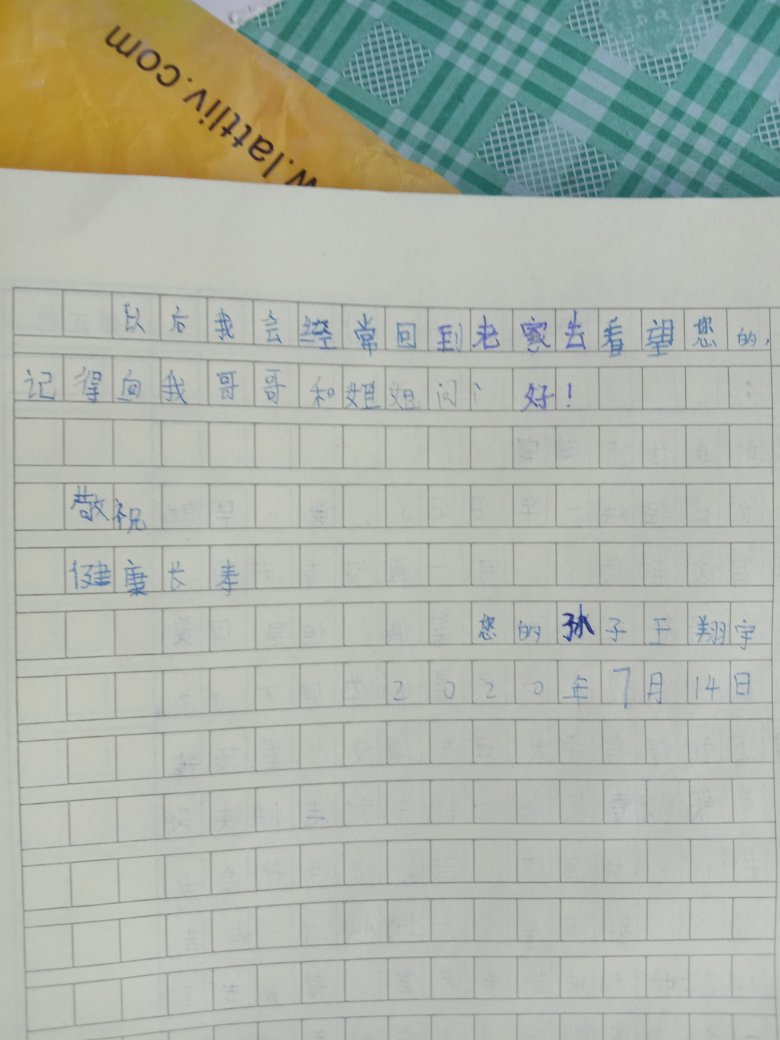 w.lattliv.com
以后我会经常回到老家去看望您的,
记得向我哥哥和姐姐问 好!
敬祝
健康长寿
您的孙子王翔宇
2020年7月14日